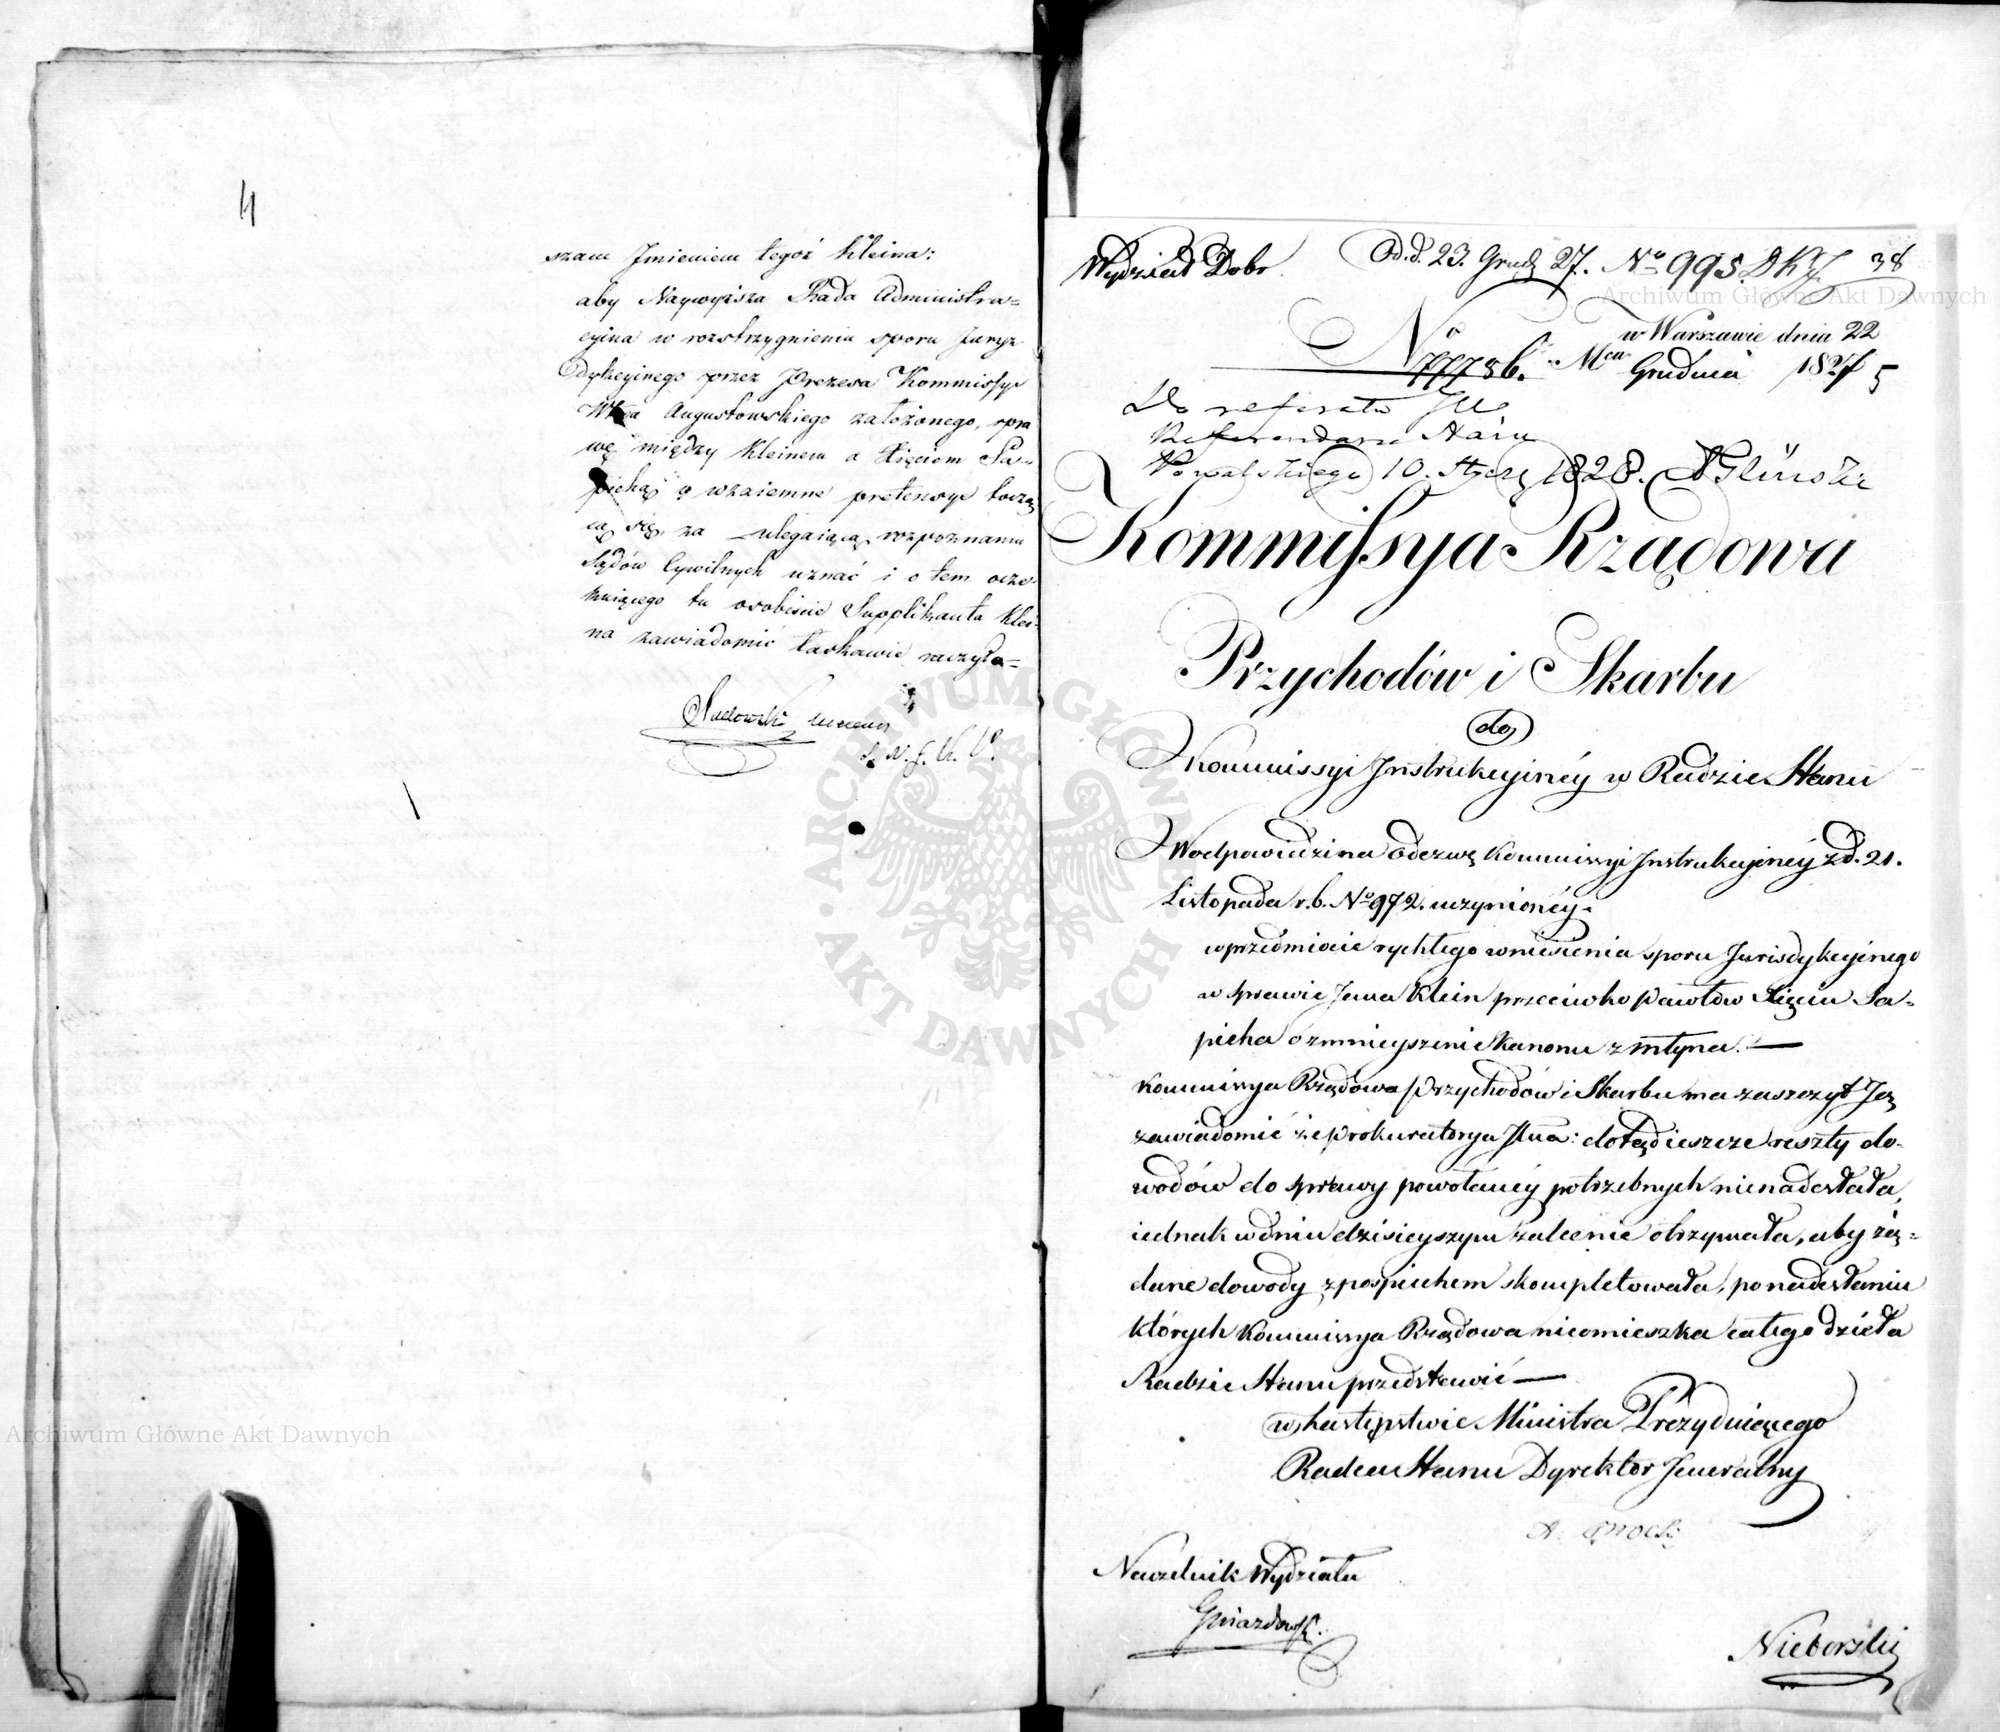 4
szam Jmieniem tegoż Kleina:
aby Naywyższa Rada Administra=
cyina w rozstrzygnieniu sporu Juryz
dykcyinego przez Prezesa Kommissyi
Augustowskiego założonego, spra
wę między Kleinem a Xięciem Sa=
piehą o wzaiemne pretensye toczą
cą się, za ulegaiącą rozpoznaniu
Sądów Cywilnych uznać i o tem ocze
kuiącego tu osobiście Supplikanta Klei-
na zawiadomić łaskawie raczyła=
Wydział Dobr. Od. d. 23. Grud 27. No 995. DKJ 38
w Warszawie dnia 22
No 77786. Mca Grudnia 1827
5
Do referatu JW
Referendarza Stanu
Kowalskiego 10. Stycz 1828. Gliński
Kommissya Rządowa
Przychodów i Skarbu
do
Kommissyi Instrukcyinéy w Radzie Stanu
W odpowiedzi na Odezwę Kommissyi Instrukcyinéy z d. 21.
Listopada r.b. No 972. uczynionéy.
w przedmiocie rychłego wniesienia sporu Jurisdykcyinego
w sprawie Jana Klein przeciwko Pawłow Xięciu Sa=
pieha o zmnieyszenie Kanonu z młyna.—
Kommissya Rządowa Przychodów i Skarbu ma zaszczyt Ją
zawiadomić że Prokuratorya Jlna: dotąd ieszcze reszty do-
wodów do sprawy powołanéy potrzebnych nienadesłała,
iednak w dniu dzisieyszym zalecenie otrzymała, aby żą=
dane dowody z pospiechem skompletowała, po nadesłaniu
których Kommissya Rządowa nieomieszka całego dzieła
Radzie Stanu przedstawić—
w Zastępstwie Ministra Prezyduiącego
Radca Stanu Dyrektor Jeneralny
Naczelnik Wydziału
Gwiazdowski.
Nieborski
ARCHIWUM GŁÓWNE AKT DAWNYCH
Archiwum Główne Akt Dawnych
Archiwum Główne Akt Dawnych